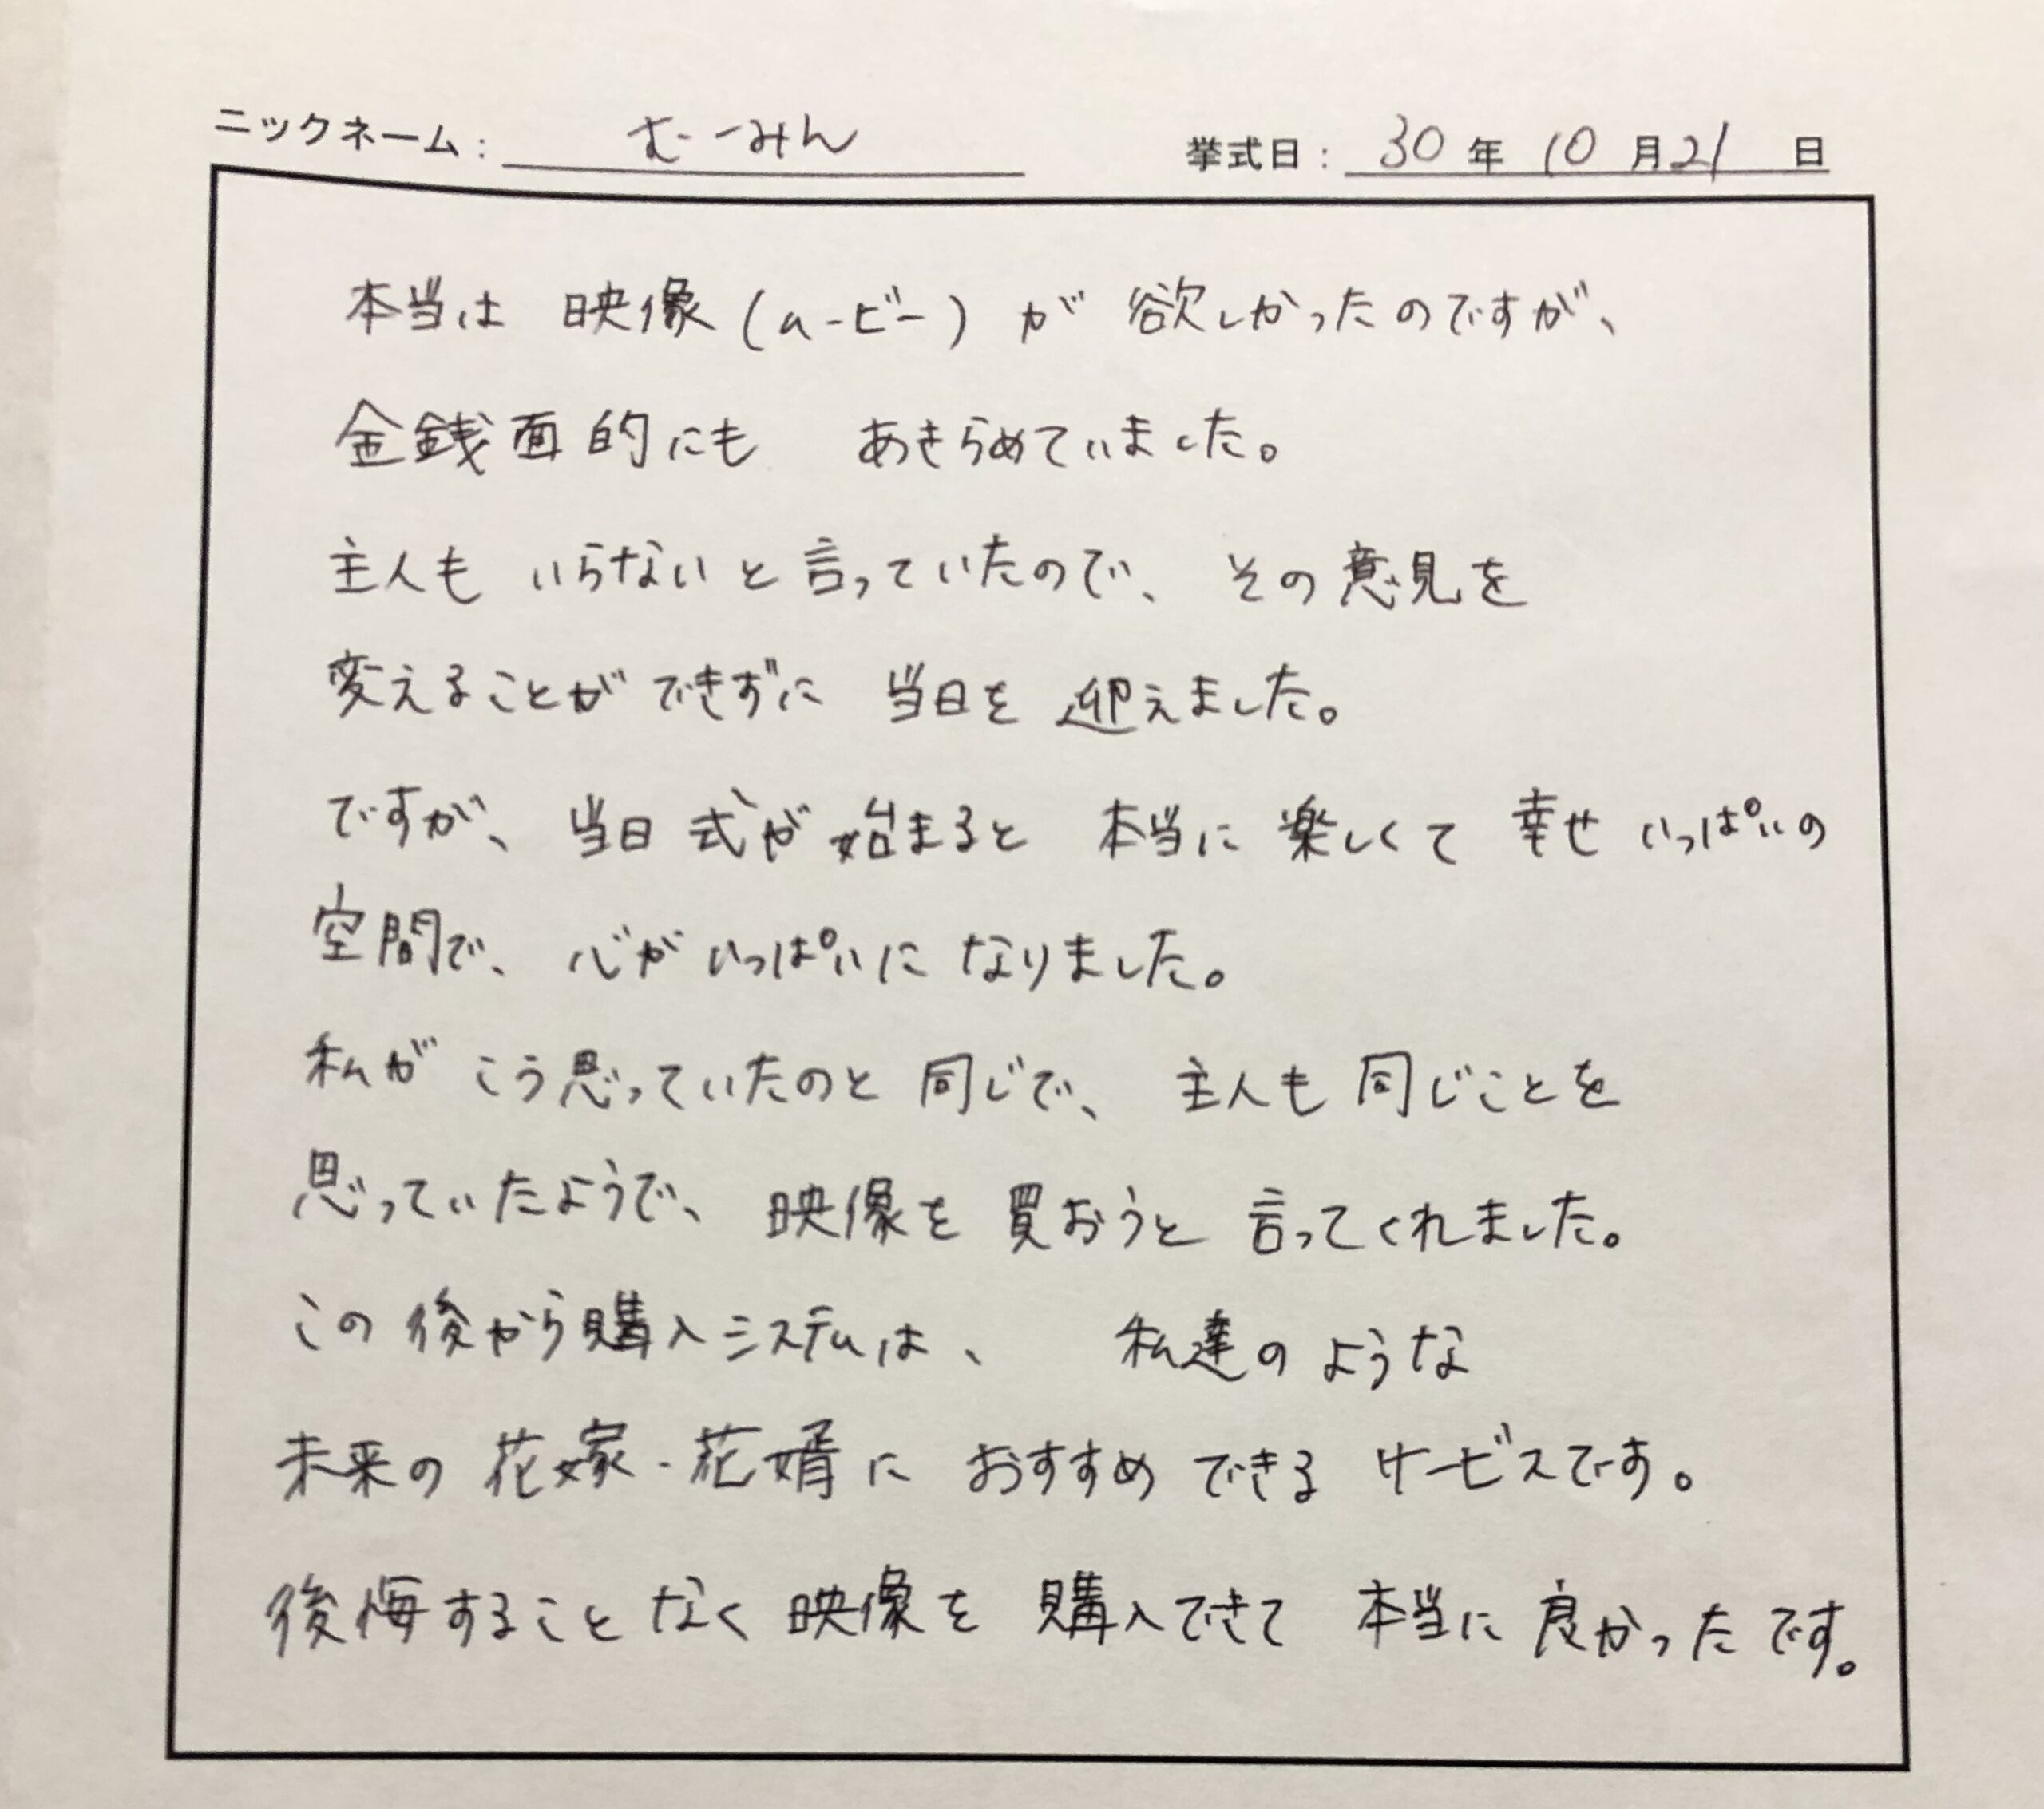 ニックネーム: むーみん 挙式日: 30年10月21日
本当は 映像(ムービー)が 欲しかったのですが、
金銭面的にも あきらめていました。
主人も いらないと言っていたので、その意見を
変えることができずに 当日を 迎えました。
ですが、当日 式が始まると 本当に 楽しくて 幸せ いっぱいの
空間で、心がいっぱいに なりました。
私が こう思っていたのと 同じで、主人も同じことを
思っていたようで、映像を 買おうと 言ってくれました。
この 後から購入システムは、 私達のような
未来の 花嫁・花婿に おすすめ できる サービスです。
後悔することなく 映像を 購入できて 本当に 良かったです。